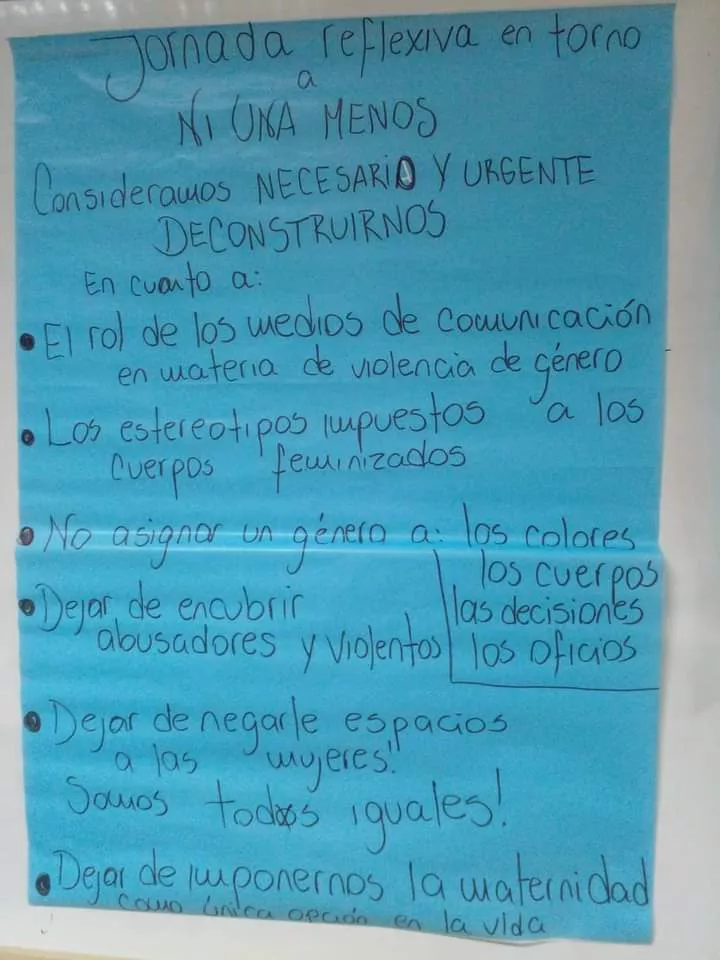 Jornada reflexiva en torno
a
NI UNA MENOS
Consideramos NECESARIO Y URGENTE
DECONSTRUIRNOS
En cuanto a:
• El rol de los medios de comunicación
en materia de violencia de género
• Los estereotipos impuestos a los
cuerpos feminizados
• No asignar un género a: los colores
los cuerpos
las decisiones
los oficios
• Dejar de encubrir
abusadores y violentos
• Dejar de negarle espacios
a las mujeres!
Somos todxs iguales!
• Dejar de imponernos la maternidad
como única opción en la vida